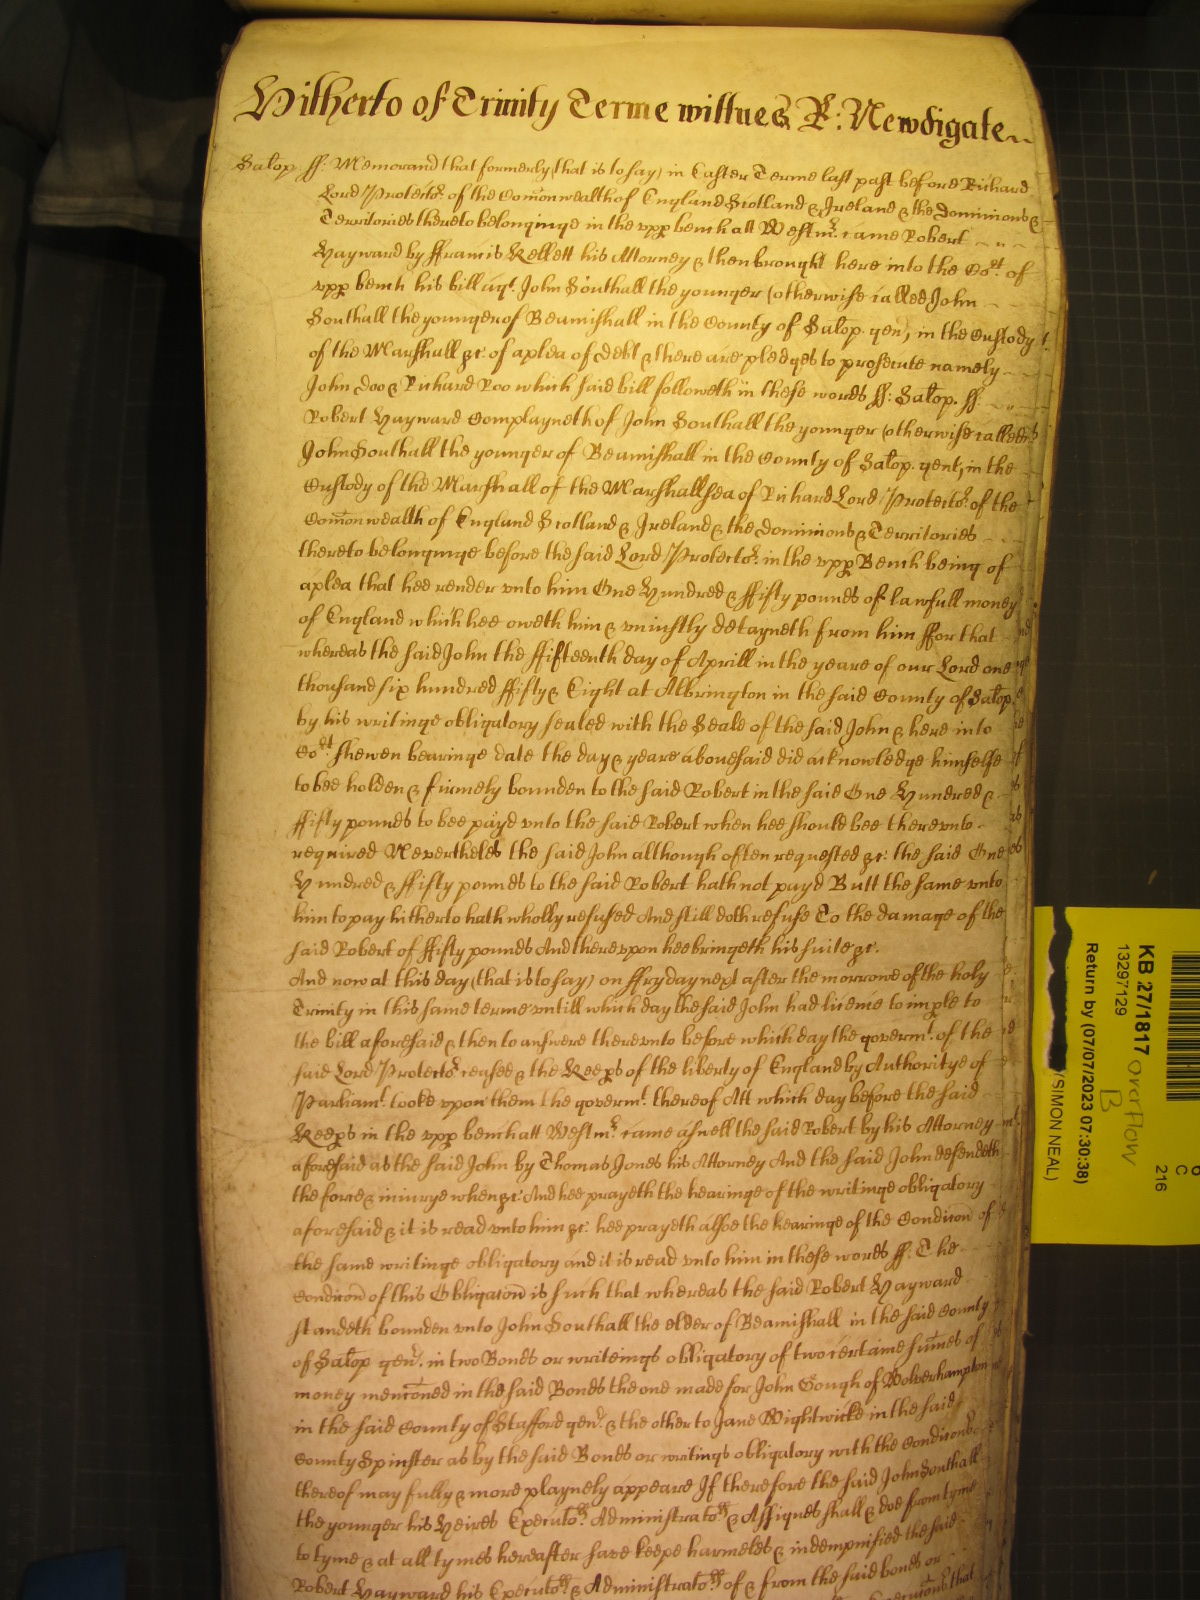 Hitherto of Trinity Terme wittnes R: Newdigate
Salop ss: Memorand that formerly (that is to say) in Easter Terme last past before Richard
Lord Protector of the Comonwealth of England Scotland & Ireland & the Dominions &
Territories thereto belonginge in the upp bench att Westmr. came Robert
Hayward by ffrancis Kellett his Attorney & then brought here into the Cort. of
upp bench his bill agt. John Southall the younger (otherwise called John
Southall the younger of Beamishall in the County of Salop. gent) in the Custody
of the Marshall &c: of a plea of debt & there are pledges to prosecute namely
John Doo & Richard Roo which said bill followeth in these words ss: Salop. ss:
Robert Hayward Complayneth of John Southall the younger (otherwise called
John Southall the younger of Beamishall in the County of Salop. gent, in the
Custody of the Marshall of the Marshallsea of Richard Lord Protector. of the
Comonwealth of England Scotland & Ireland & the Dominions & Territories
thereto belonginge before the said Lord Protector. in the upp Bench being of
a plea that hee render unto him One Hundred & ffifty pounds of lawfull money
of England which hee oweth him & uniustly detayneth from him ffor that
whereas the said John the ffifteenth day of Aprill in the yeare of our Lord one
thousand six hundred ffifty & Eight at Albrington in the said County of Salop.
by his writinge obligatory sealed with the Seale of the said John & here into
Cort shewen bearinge date the day & yeare abouesaid did acknowledge himselfe
to bee holden & firmely bounden to the said Robert in the said One Hundred &
ffifty pounds to bee payd unto the said Robert when hee should bee thereunto
required Nevertheles the said John although often requested &c: the said One
Hundred & ffifty pounds to the said Robert hath not payd Butt the same unto
him to pay hitherto hath wholly refused And still doth refuse To the damage of the
said Robert of ffifty pounds And thereupon hee bringeth his suite &c:
And now at this day (that is to say) on ffryday next after the morrowe of the holy
Trinity in this same terme untill which day the said John had licence to imple to
the bill aforesaid & then to answere thereunto before which day the govermt. of the
said Lord Protector. ceased & the Keeps of the liberty of England by Authoritye of
Parliamt. tooke upon them the govermt. thereof Att which day before the said
Keeps in the upp bench att Westmr. came aswell the said Robert by his Attorney
aforesaid as the said John by Thomas Jones his Attorney And the said John defendeth
the force & iniurye when &c: And hee prayeth the hearinge of the writinge obligatory
aforesaid & it is read unto him &c: hee prayeth alsoe the hearinge of the Condicon of
the same writinge obligatory and it is read unto him in these words ss: The
Condicon of this Obligacon is such that whereas the said Robert Hayward
standeth bounden unto John Southall the elder of Beamishall in the said County
of Salop gent. in two Bonds or writeings obligatory of two certaine sumes of
money menconed in the said Bonds the one made for John Gough of Wolverhampton
in the said County of Stafford gent. & the other to Jane Wightwicke in the said
County Spinster as by the said Bonds or writings obligatory with the Condicons
thereof may fully & more playnely appeare If therefore the said John Southall
the younger his Heires Executors Administrators & Assignes shall & doe from tyme
to tyme & at all tymes hereafter save keepe harmeles & indempnified the said
Robert Hayward his Executors & Administrators of & from the said bonds or
that
KB 27/1817
overflow
B
13297129
Return by (07/07/2023 07:30:38)
(SIMON NEAL)
C
216